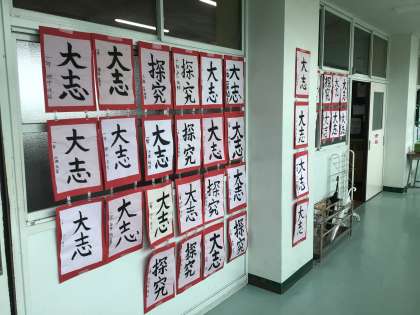 大志 大志 探究 探究 大志 大志
大志 大志 大志 探究 大志 大志
大志 大志 探究 大志 探究 大志
探究 探究 大志 探究
大志
大志
大志
大志
探究 大志 大志
大志 大志 大志